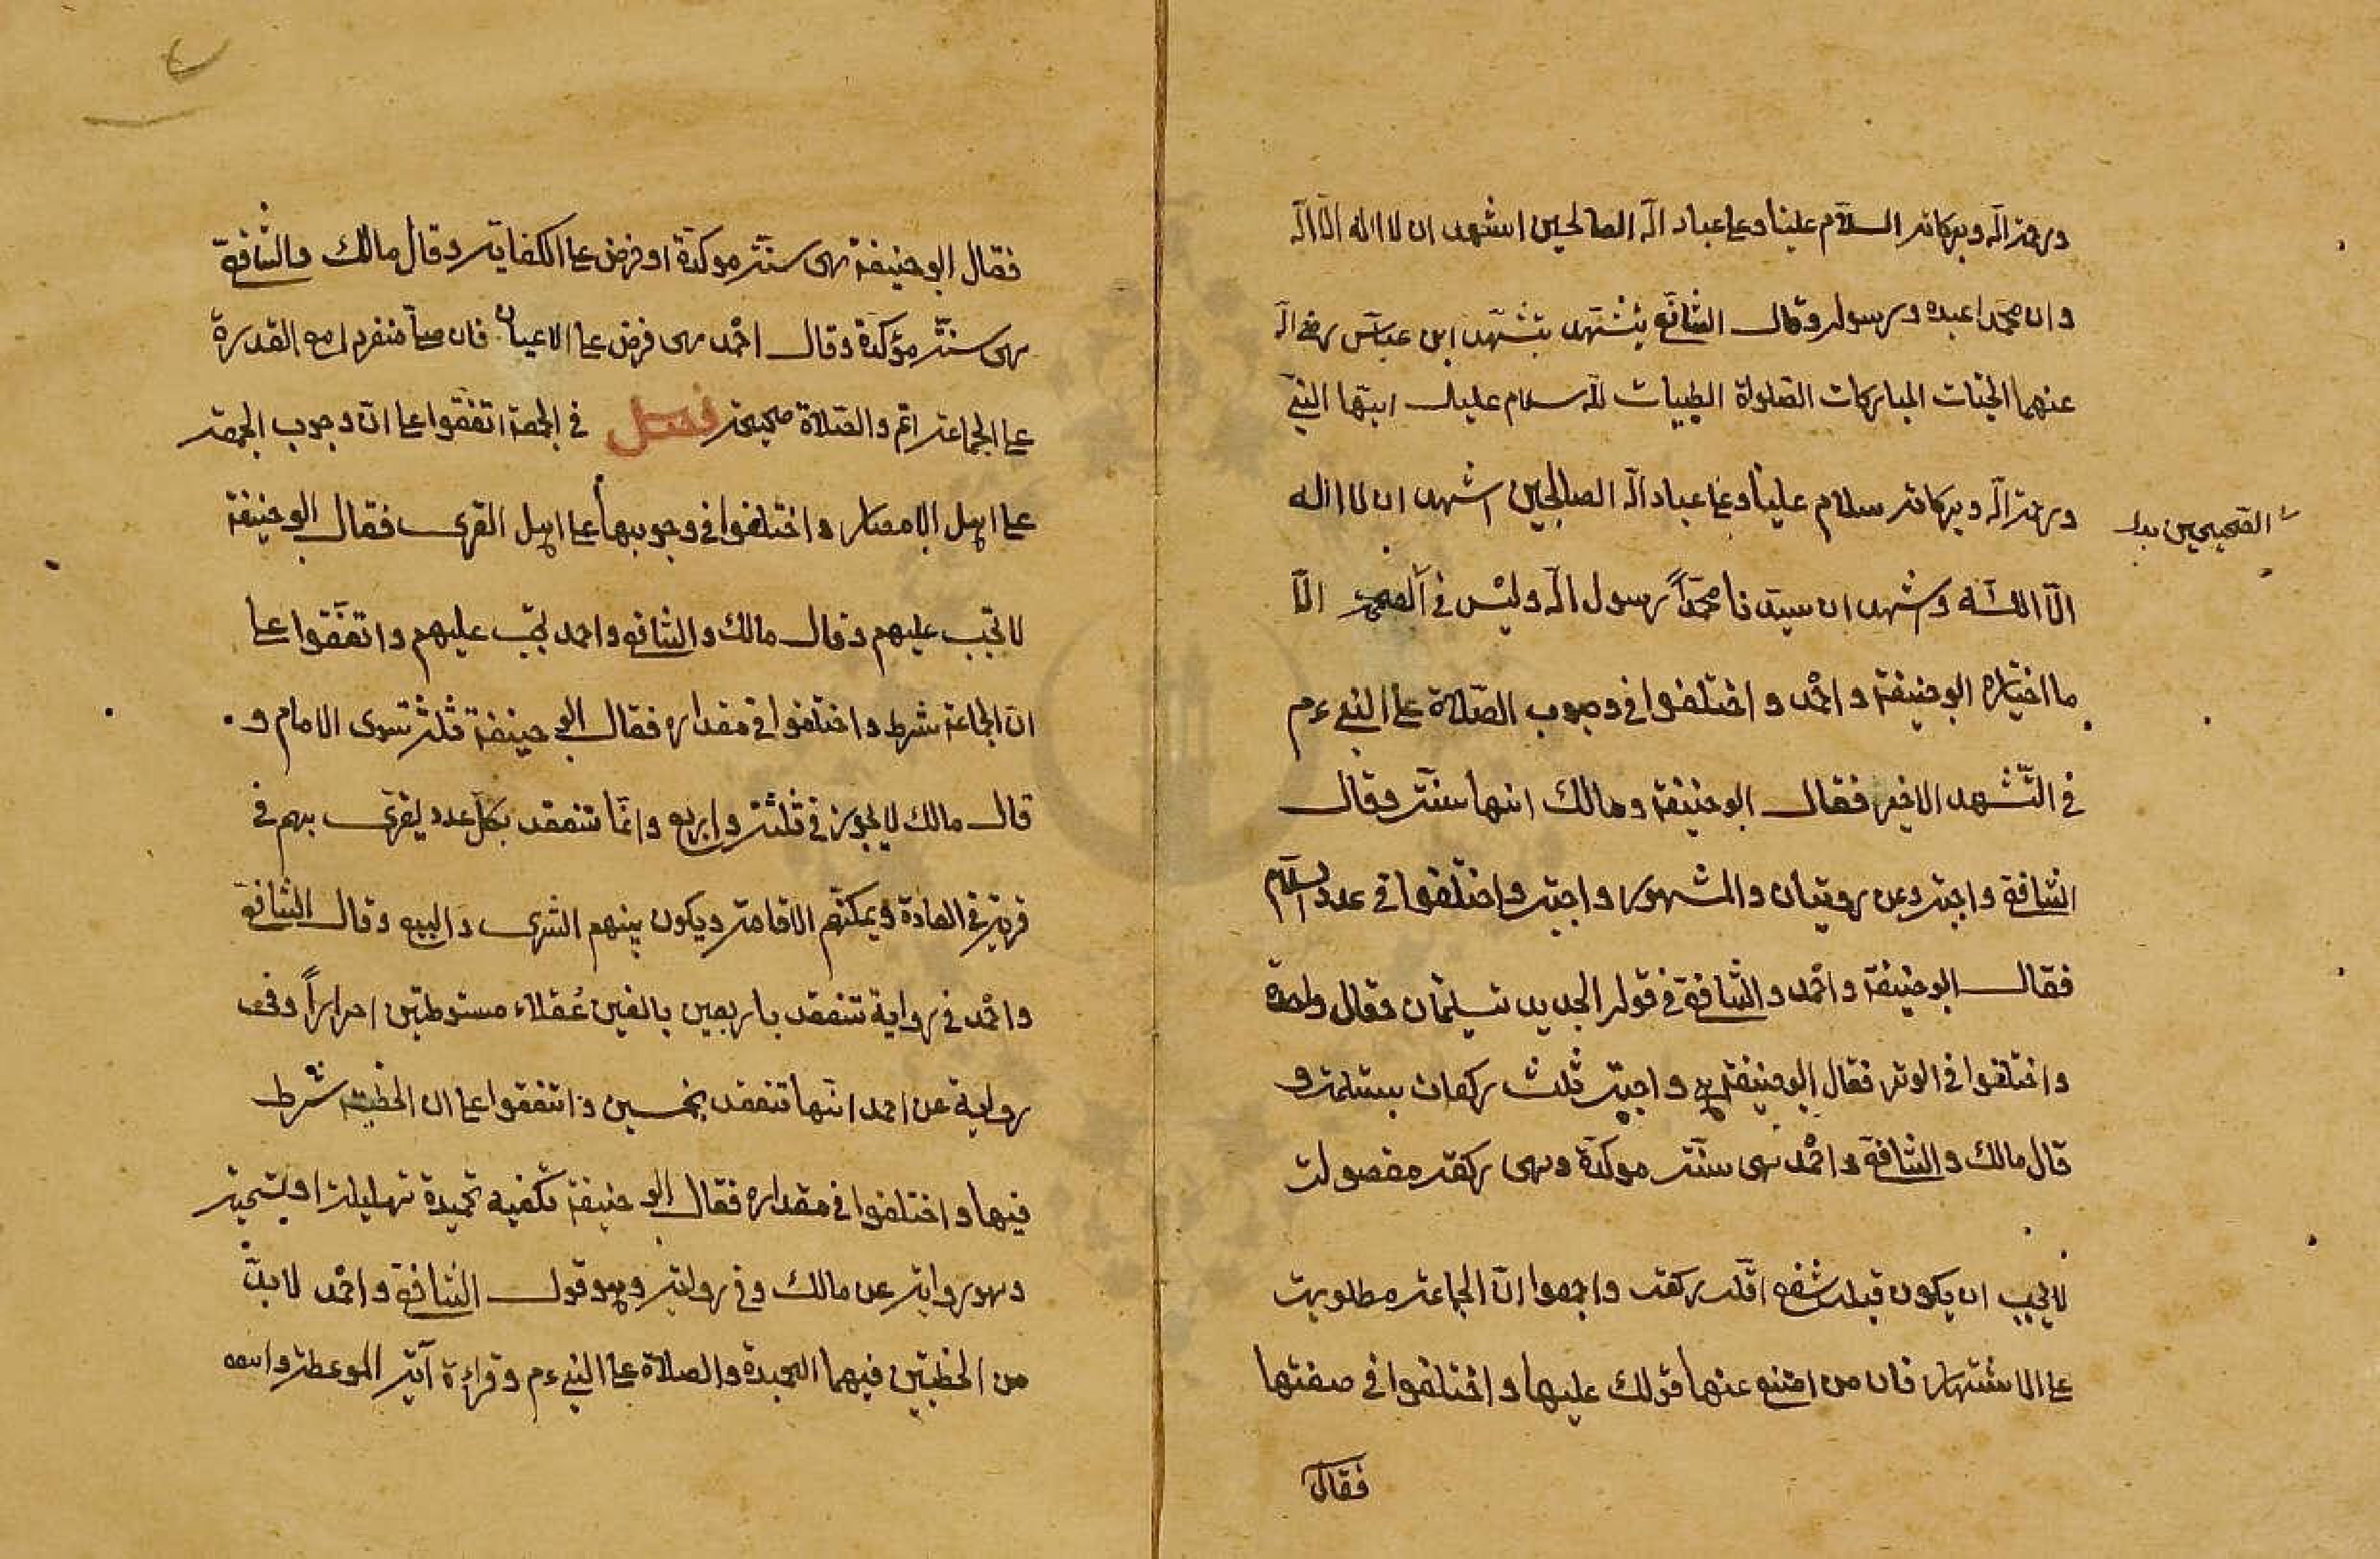 ورحمة الله وبركاته السلام علينا وعلى عباد الله الصالحين اشهد ان لا اله الا الله
وان محمدا عبده ورسوله وقال الشافعي يتشهد بتشهد ابن عباس رضي الله
عنهما التحيات المباركات الصلواة الطيبات لله سلام عليك ايتها النبي
ورحمة الله وبركاته سلام علينا وعلى عباد الله الصالحين اشهد ان لا اله
الصحيحين بدل
الا الله واشهد ان سيدنا محمداً رسول الله وليس في الا
ما اختاره ابو حنيفة واحمد واختلفوا في وجوب الصلاة على النبي ءم
في التشهد الاخير فقال ابو حنيفة ومالك انها سنة وقال
الشافعي واجبة وعن روتيان والمشهور واجبة واختلفوا في عدد السلام
فقال ابو حنيفة واحمد والشافعي في قوله الجديد تسليمتان فقال واحدة
واختلفوا في الوتر فقال ابو حنيفة هي واجبة ثلث ركعات بتسلمة و
قال مالك والشافعي واحمد هي سنة موكدة وهى ركعة مفصولت
لا يجب ان يكون قبله شفع اقله ركعة واجمعوا ان الجماعة مطلوبة
على الاشتهار فان من امتنع عنها قولك عليها واختلفوا في صفتها
فقال
فقال ابو حنيفة هى سنة موكدة او فرض على الكفاية وقال مالك والشافعي
هى سنة مؤكدة وقال احمد هى فرض على الاعيان فان صلى منفردا مع القدرة
على الجماعة اثم والصلاة صحيحة فصل في الجمعة اتفقوا على ان وجوب الجمعة
على اهل الامصار واختلفوا في وجوبها على اهل القرى فقال ابو حنيفة
لا تجب عليهم وقال مالك والشافعي واحمد تجب عليهم واتفقوا على
ان الجماعة شرط واختلفوا في مقداره فقال ابو حنيفة ثلثة سوى الامام و
قال مالك لا يجوز في ثلثة واربع وانما تنعقد بكل عدد يقرى بهم في
قرية في العادة ويمكنهم الاقامة ويكون بينهم الشرى والبيع وقال الشافعي
واحمد في رواية تنعقد باربعين بالغين عقلاء مستوطنين احراراً وفى
رواية عن احمد انها تنعقد بخمسين واتفقوا على ان الخطبة شرط
فيها واختلفوا في مقداره فقال ابو حنيفة تكفيه تحميدة تهليلة او تسبيحة
وهو رواية عن مالك وفي رواية وهو قول الشافعي واحمد لا بد
من الخطبتين فيهما التحميدة والصلاة على النبي ءم وقراءة آية الموعظة واسمه